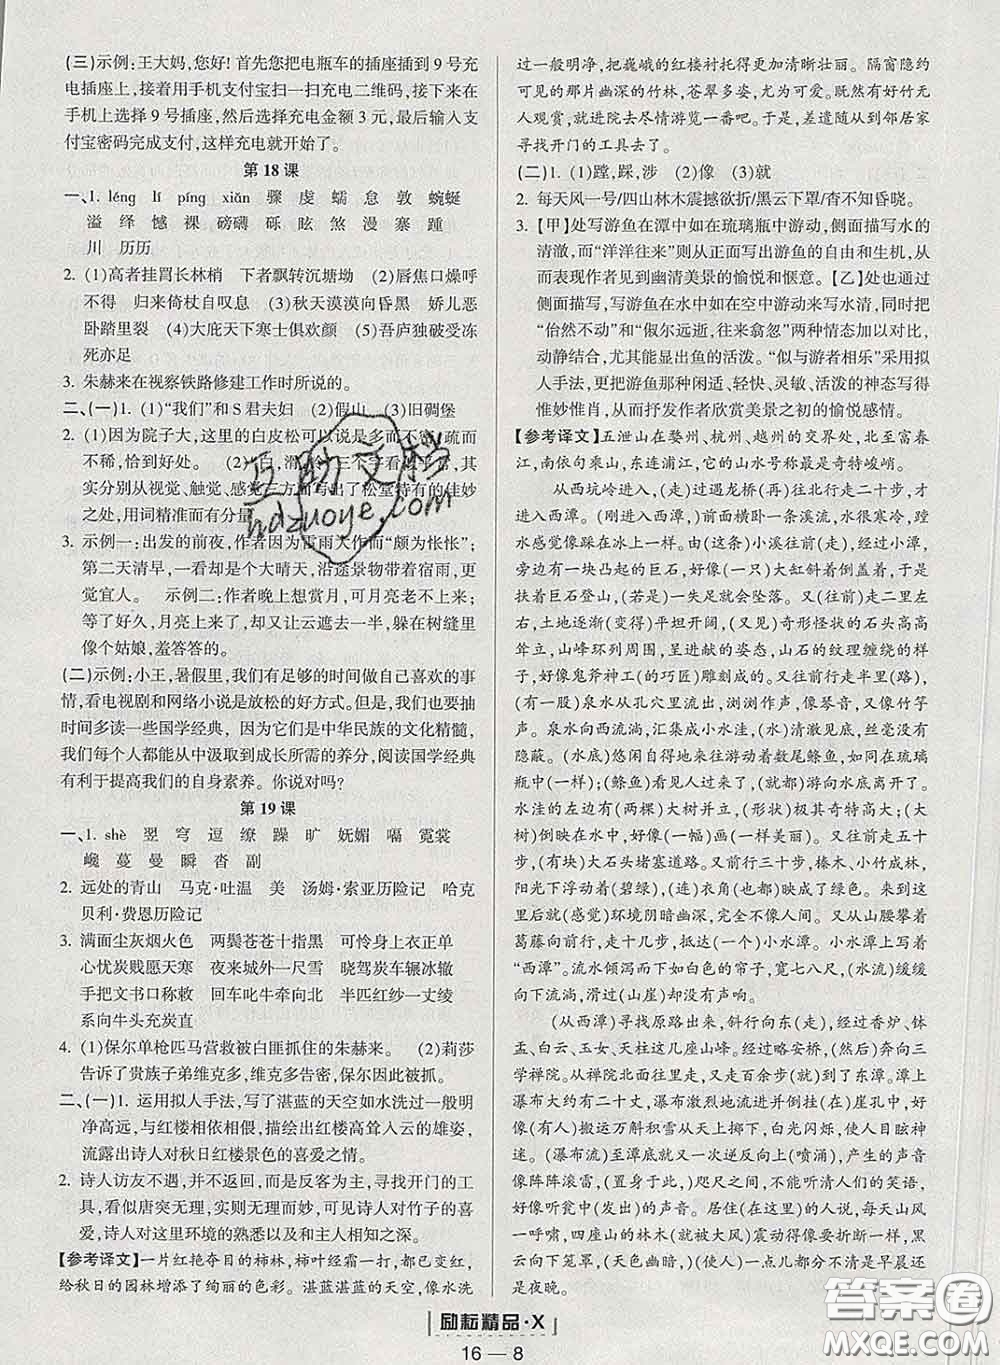 (三)示例:王大妈,您好!首先您把电瓶车的插座插到9号充
电插座上,接着用手机支付宝扫一扫充电二维码,充电后在
手机上选择9号插座,然后选择充电金额3元,最后输入支
付宝密码完成支付,这样充电就开始了。
第18课
一、1. lěng lī píng xiǎn 骤 虔 蠕 怠 敦 蜿蜒
溢 绎 憾 裸 磅礴 砾 眩 煞 漫 寨 踵
川 历历
2. (1)高者挂罥长林梢 下者飘转沉塘坳 (2)唇焦口燥呼
不得 归来倚杖自叹息 (3)秋天漠漠向昏黑 娇儿恶
卧踏里裂 (4)大庇天下寒士俱欢颜 (5)吾庐独破受冻
死亦足
3. 朱赫来在视察铁路修建工作时所说的。
二、(一)1. (1)“我们”和S君夫妇 (2)假山 (3)旧碉堡
2. (1)因为院子大,这里的白皮松可以说是多而不密,疏而
不稀,恰到好处。
之处,用词精准而有分量。
3. 示例一:出发的前夜,作者因为雷雨大作而“颇为怅怅”;
第二天清早,一看却是个大晴天,沿途景物带着宿雨,更
觉宜人。 示例二:作者晚上想赏月,可月亮老不出来;
等了好久,月亮上来了,却让云遮去一半,躲在树缝里
像个姑娘,羞答答的。
(二)示例:小王,暑假里,我们有足够的时间做自己喜欢的事
情,看电视剧和网络小说是放松的好方式。但我们也要抽
时间多读一些国学经典,因为它们是中华民族的文化精髓,
我们每个人都能从中汲取到成长所需的养分,阅读国学经典
有利于提高我们的自身素养。你说对吗?
第19课
一、1. shè 翌 穹 逗 缭 躁 旷 妩媚 嗝 霓裳
巉 蔓 曼 瞬 沓 副
2. 远处的青山 马克·吐温 美 汤姆·索亚历险记 哈克
贝利·费恩历险记
3. 满面尘灰烟火色 两鬓苍苍十指黑 可怜身上衣正单
心忧炭贱愿天寒 夜来城外一尺雪 晓驾炭车辗冰辙
手把文书口称敕 回车叱牛牵向北 半匹红纱一丈绫
系向牛头充炭直
4. (1)保尔单枪匹马营救被白匪抓住的朱赫来。 (2)莉莎
告诉了贵族子弟维克多,维克多告密,保尔因此被抓。
二、(一)1. 运用拟人手法,写了湛蓝的天空如水洗过一般明
净高远,与红楼相依相偎,描绘出红楼高耸入云的雄姿,
流露出诗人对秋日红楼景色的喜爱之情。
2. 诗人访友不遇,并不返回,而是反客为主,寻找开门的工
具,看似唐突无理,实则无理而妙,可见诗人对竹子的喜
爱,诗人对这里环境的熟悉以及和主人相知之深。
【参考译文】一片红艳夺目的柿林,柿叶经霜一打,都已变红,
给秋日的园林增添了绚丽的色彩。湛蓝湛蓝的天空,像水洗
过一般明净,把巍峨的红楼衬托得更加清晰壮丽。隔窗隐约
可见的那片幽深的竹林,苍翠多姿,尤为可爱。既然有好竹无
人观赏,就进院去尽情游览一番吧。于是,差遣随从到邻居家
寻找开门的工具去了。
(二)1. (1)蹚,踩,涉 (2)像 (3)就
2. 每天风一号/四山林木震撼欲折/黑云下罩/杳不知昏晓。
3. 【甲】处写游鱼在潭中游动如在琉璃瓶中游动,侧面描写水的
清澈,而“洋洋往来”则从正面写出游鱼的自由和生机,从
而表现作者见到幽清美景的愉悦和惬意。【乙】处也通过
侧面描写,写游鱼在水中如在空中游动来写水清,同时把
“佁然不动”和“俶尔远逝,往来翕忽”两种情态加以对比,
动静结合,尤其能显出鱼的活泼。“似与游者相乐”采用拟
人手法,把游鱼那种闲适、轻快、灵敏、活泼的神态写得
惟妙惟肖,从而抒发作者欣赏美景之初的愉悦感情。
【参考译文】五泄山在婺州、杭州、越州的交界处,北至富春
江,南依句乘山,东连浦江,它的山水号称最是奇特峻峭。
从西坑岭进入,(走)过遇龙桥(再)往北行走二十步,才
进入西潭。(刚进入西潭,)面前横卧一条溪流,水很寒冷,蹚
水感觉像踩在冰雪上一样。由(这条)小溪往前走到小潭,
前边有一块凸起的巨石,好像(一只)大缸斜着放在那里,抓
着巨石登山,(可能)一失足就会坠落。又(往前)走二里左
右,土地逐渐(变得)平坦开阔,(又见)奇形怪状的石头高高
耸立,山峰环列周围。走得更远,山石的纹理缠绕的样子,
好像鬼斧神工(的巧匠)雕刻成的一般。又往前走半里(路),
(有很多股)清泉水从孔穴里流出,浏浏作声,像琴音,又像竽
声。泉水向西流淌,汇集成小水洼,(水)清澈见底,没有一丝
隐蔽。(水底)悠闲自得地来往游动着数尾鲦鱼,如同在琉璃
瓶中(一样);(鲦鱼)看见人过来,(就都)游向水底离开了。
水洼的旁边,有(两棵)大树并立,(形状)极其奇特高大,(大
树)倒映在水中,好像(一幅)画(一样美丽)。又往前走五十
步,(有块)大石头堵塞道路。又前行三十步,榛木、小竹成林,
阳光下浮动着(碧绿),(连)衣角(也被)映成了绿色。来到这
里后就(感觉)环境阴暗幽深,完全不像人间。又从山腰攀着
葛藤向前行,走六十五步,来到一个小水潭。小水潭上写着
“西潭”。流水倾泻而下如白色的帘子,宽七八尺,(水流)缓缓
向下流淌,滑过(山崖)却没有声响。
(从西潭)寻找原路出来,斜行向东(走),经过香炉、钵
盂、白云、玉女、天柱这几座山峰。经过略安桥,(然后)奔向三
学禅院。从禅院向东走,又走百余步(就)到了东潭。潭上
瀑布大约有二十丈,瀑布激烈地流荡(在)崖孔中,好
像搬运万斛积雪从天上掷下,白光闪烁,使人头晕目眩。
(瀑布流)至潭底就又一次逆反向上(喷涌),产生的声音
像阵阵滚雷,(彼此)咫尺之间,不能听清(游人的)笑语,
好像听瓮中(发出)的声音。居住(在这里)的人说,每天风
一呼啸,四山的林木(就被大风)撼动(得)要折断,乌
云向下笼罩,(天色幽暗),(人们)昏昏然不知道是早晨还
是夜晚。
励耘精品·X
16—8
互助文档
hdzuoye.com
答案圈
MXQE.COM